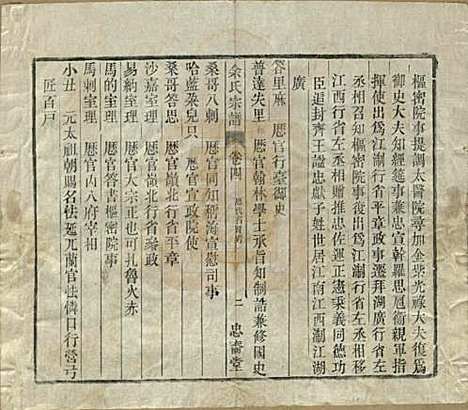 樞密院事提調太醫院尋加金紫光祿大夫復爲
御史大夫知經筵事兼忠宣斡羅思扈衞親軍指
揮使出爲江浙行省平章政事遷拜湖廣行省左
江西行省左丞相贈推忠佐運正憲秉義同德功
臣追封齊王諡忠獻子姓世居江南江西浙江湖
廣
答里麻　歷官行臺御史
普達失里　歷官翰林學士承旨知制誥兼修國史
余氏宗譜　卷四　二　忠書堂
桑哥八剌　歷官同知稱海宣慰司事
哈藍朶兒只　歷官宣政院使
桑哥答思　歷官嶺北行中書省平章
沙嘉室理　歷官嶺北行樞密院事
易納室理　歷官大宗正也可扎魯火赤
馬的室理　歷官僉書樞密院事
馬剌室理　歷官內八府宰相
小丑　元太祖朝賜名怯延兀蘭官怯憐口行營弓
匠百戶